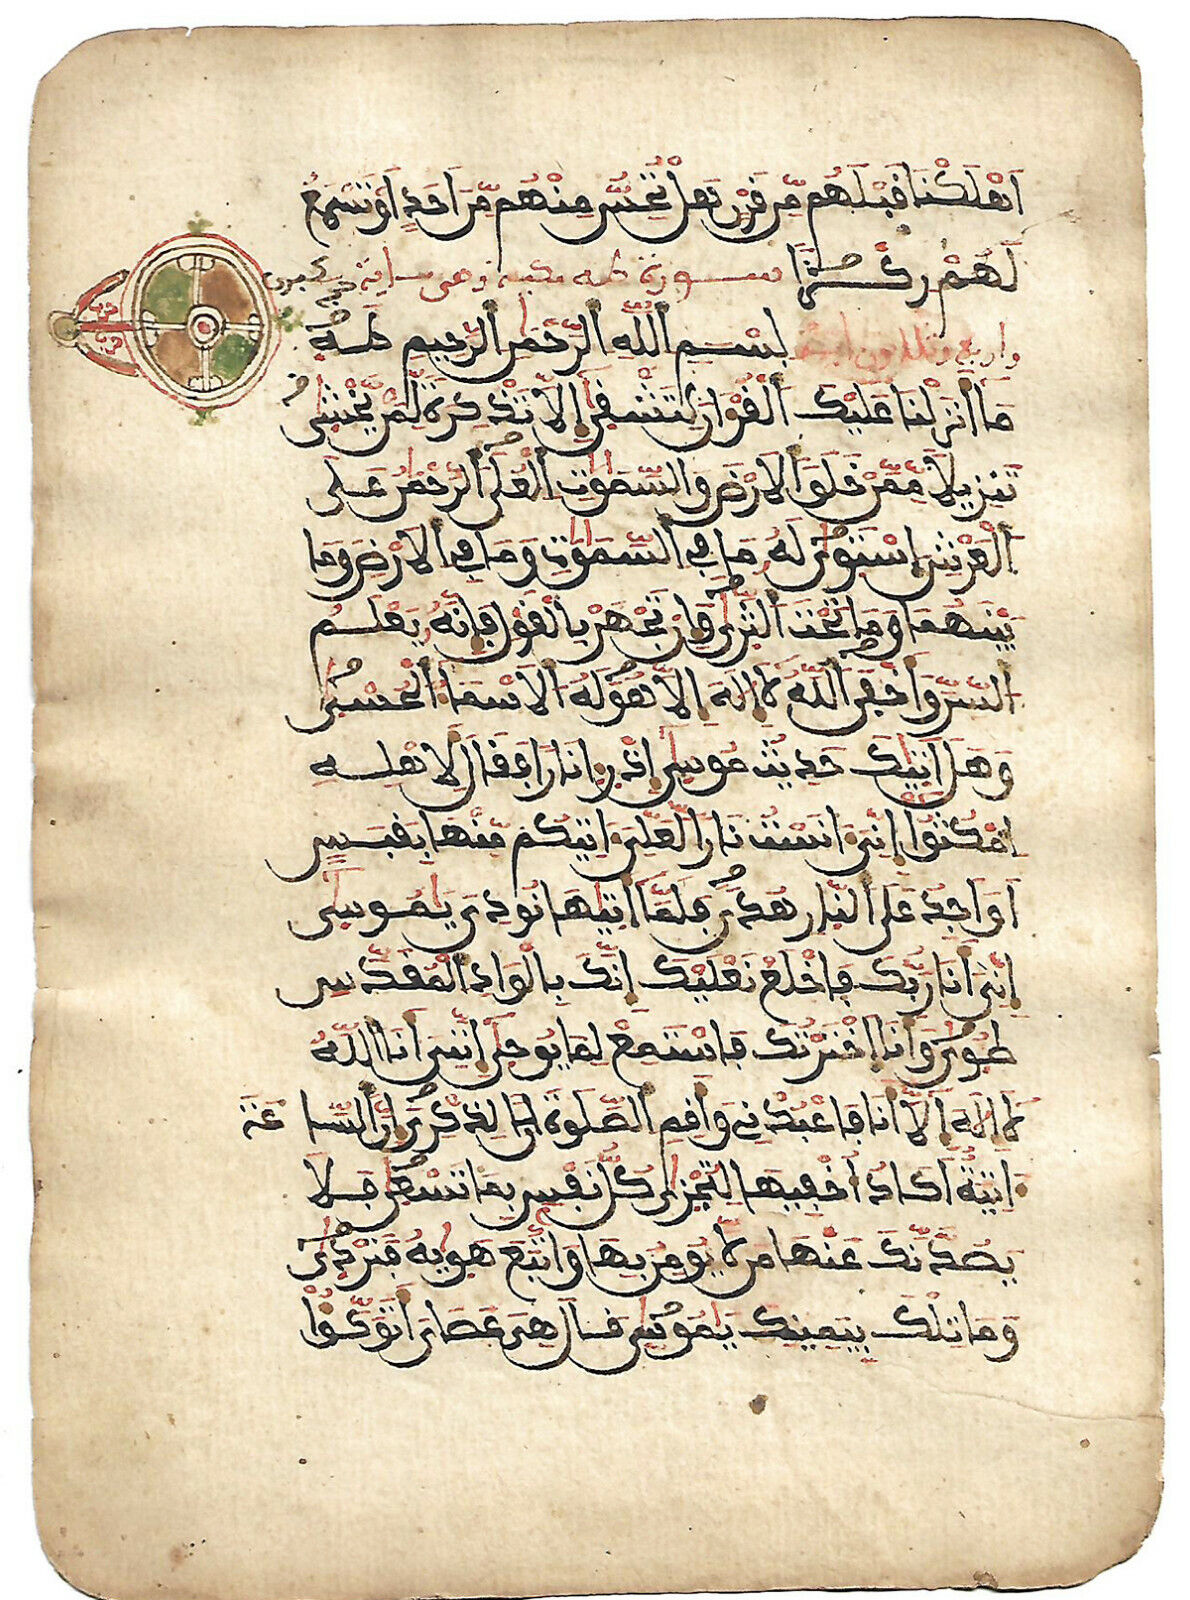 اَهْلَكْنَا قَبْلَهُم مِّن قَرْنٍ هَلْ تُحِسُّ مِنْهُم مِّنَ اَحَدٍ اَوْ تَسْمَعُ
لَهُمْ رِكْزًا سورة طه مكية وهي مائة
واربع وثلاثون اية بِسْمِ اللَّهِ الرَّحْمَنِ الرَّحِيمِ طه
مَا أَنزَلْنَا عَلَيْكَ الْقُرْءَانَ لِتَشْقَى إِلَّا تَذْكِرَةً لِّمَنْ يَّخْشَى
تَنزِيلًا مِّمَّنْ خَلَقَ الْاَرْضَ وَالسَّمَوَتِ الْعُلَى الرَّحْمَنُ عَلَى
الْعَرْشِ اِسْتَوَى لَهُ مَا فِي السَّمَوَتِ وَمَا فِي الْاَرْضِ وَمَا
بَيْنَهُمَا وَمَا تَحْتَ الثَّرَى وَإِن تَجْهَرْ بِالْقَوْلِ فَإِنَّهُ يَعْلَمُ
السِّرَّ وَأَخْفَى اللَّهُ لَا إِلَهَ إِلَّا هُوَ لَهُ الْاَسْمَاءُ الْحُسْنَى
وَهَلَ اَتَيكَ حَدِيثُ مُوسَى إِذْ رَءَا نَارًا فَقَالَ لِاَهْلِهِ
امْكُثُوا إِنِّيَ ءَانَسْتُ نَارًا لَّعَلِّيَ ءَاتِيكُم مِّنْهَا بِقَبَسٍ
اَوَ اَجِدُ عَلَى النَّارِ هُدًى فَلَمَّا أَتَيهَا نُودِيَ يَمُوسَى
إِنِّيَ أَنَا رَبُّكَ فَاخْلَعْ نَعْلَيْكَ إِنَّكَ بِالْوَادِ الْمُقَدَّسِ
طُوَى وَأَنَا اَخْتَرْتُكَ فَاسْتَمِعْ لِمَا يُوحَى إِنَّنِيَ أَنَا اللَّهُ
لَا إِلَهَ إِلَّا أَنَا فَاعْبُدْنِي وَأَقِمِ الصَّلَوةَ لِذِكْرِيَ إِنَّ السَّاعَةَ
ءَاتِيَةٌ اَكَادُ أُخْفِيهَا لِتُجْزَى كُلُّ نَفْسٍ بِمَا تَسْعَى فَلَا
يَصُدَّنَّكَ عَنْهَا مَن لَّا يُومِنُ بِهَا وَاتَّبَعَ هَوَيهُ فَتَرْدَى
وَمَا تِلْكَ بِيَمِينِكَ يَمُوسَى قَالَ هِيَ عَصَايَ أَتَوَكَّؤُا